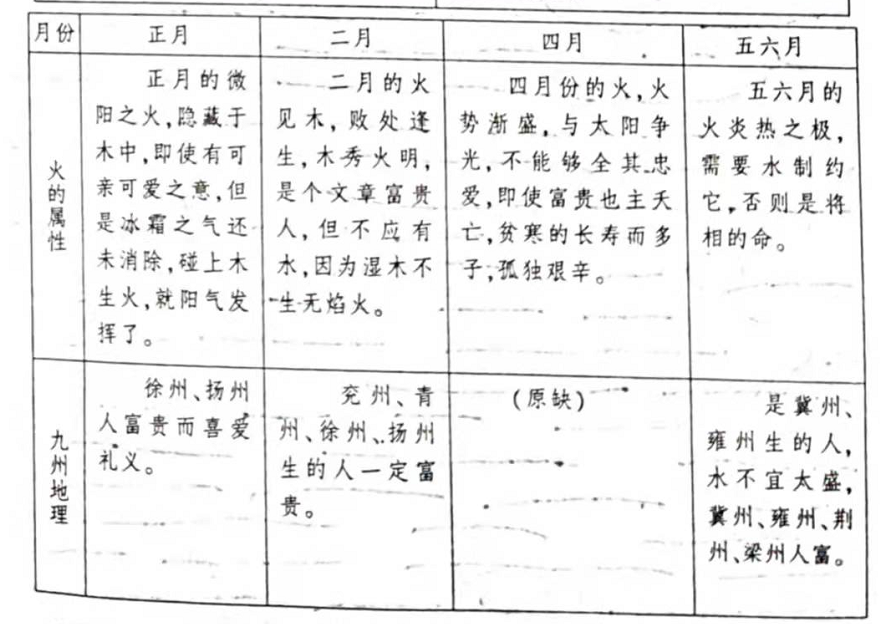 月份
正月
二月
四月
五六月
火的属性
正月的微
阳之火,隐藏于
木中,即使有可
亲可爱之意,但
是冰霜之气还
未消除,碰上木
生火,就阳气发
挥了。
二月的火
见木,败处逢
生,木秀火明,
是个文章富贵
人,但不应有
水,因为湿木不
生无焰火。
四月份的火,火
势渐盛,与太阳争
光,不能够全其忠
爱,即使富贵也主夭
亡,贫寒的长寿而多
子,孤独艰辛。
五六月的
火炎热之极,
需要水制约
它,否则是将
相的命。
九州地理
徐州、扬州
人富贵而喜爱
礼义。
兖州、青
州、徐州、扬州
生的人一定富
贵。
(原缺)
是冀州、
雍州生的人,
水不宜太盛,
冀州、雍州、荆
州、梁州人富。